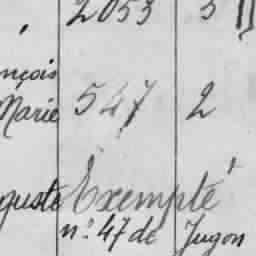 2053 3
nçois
Marie 547 2
guste Exempté
n° 47 de Jugon